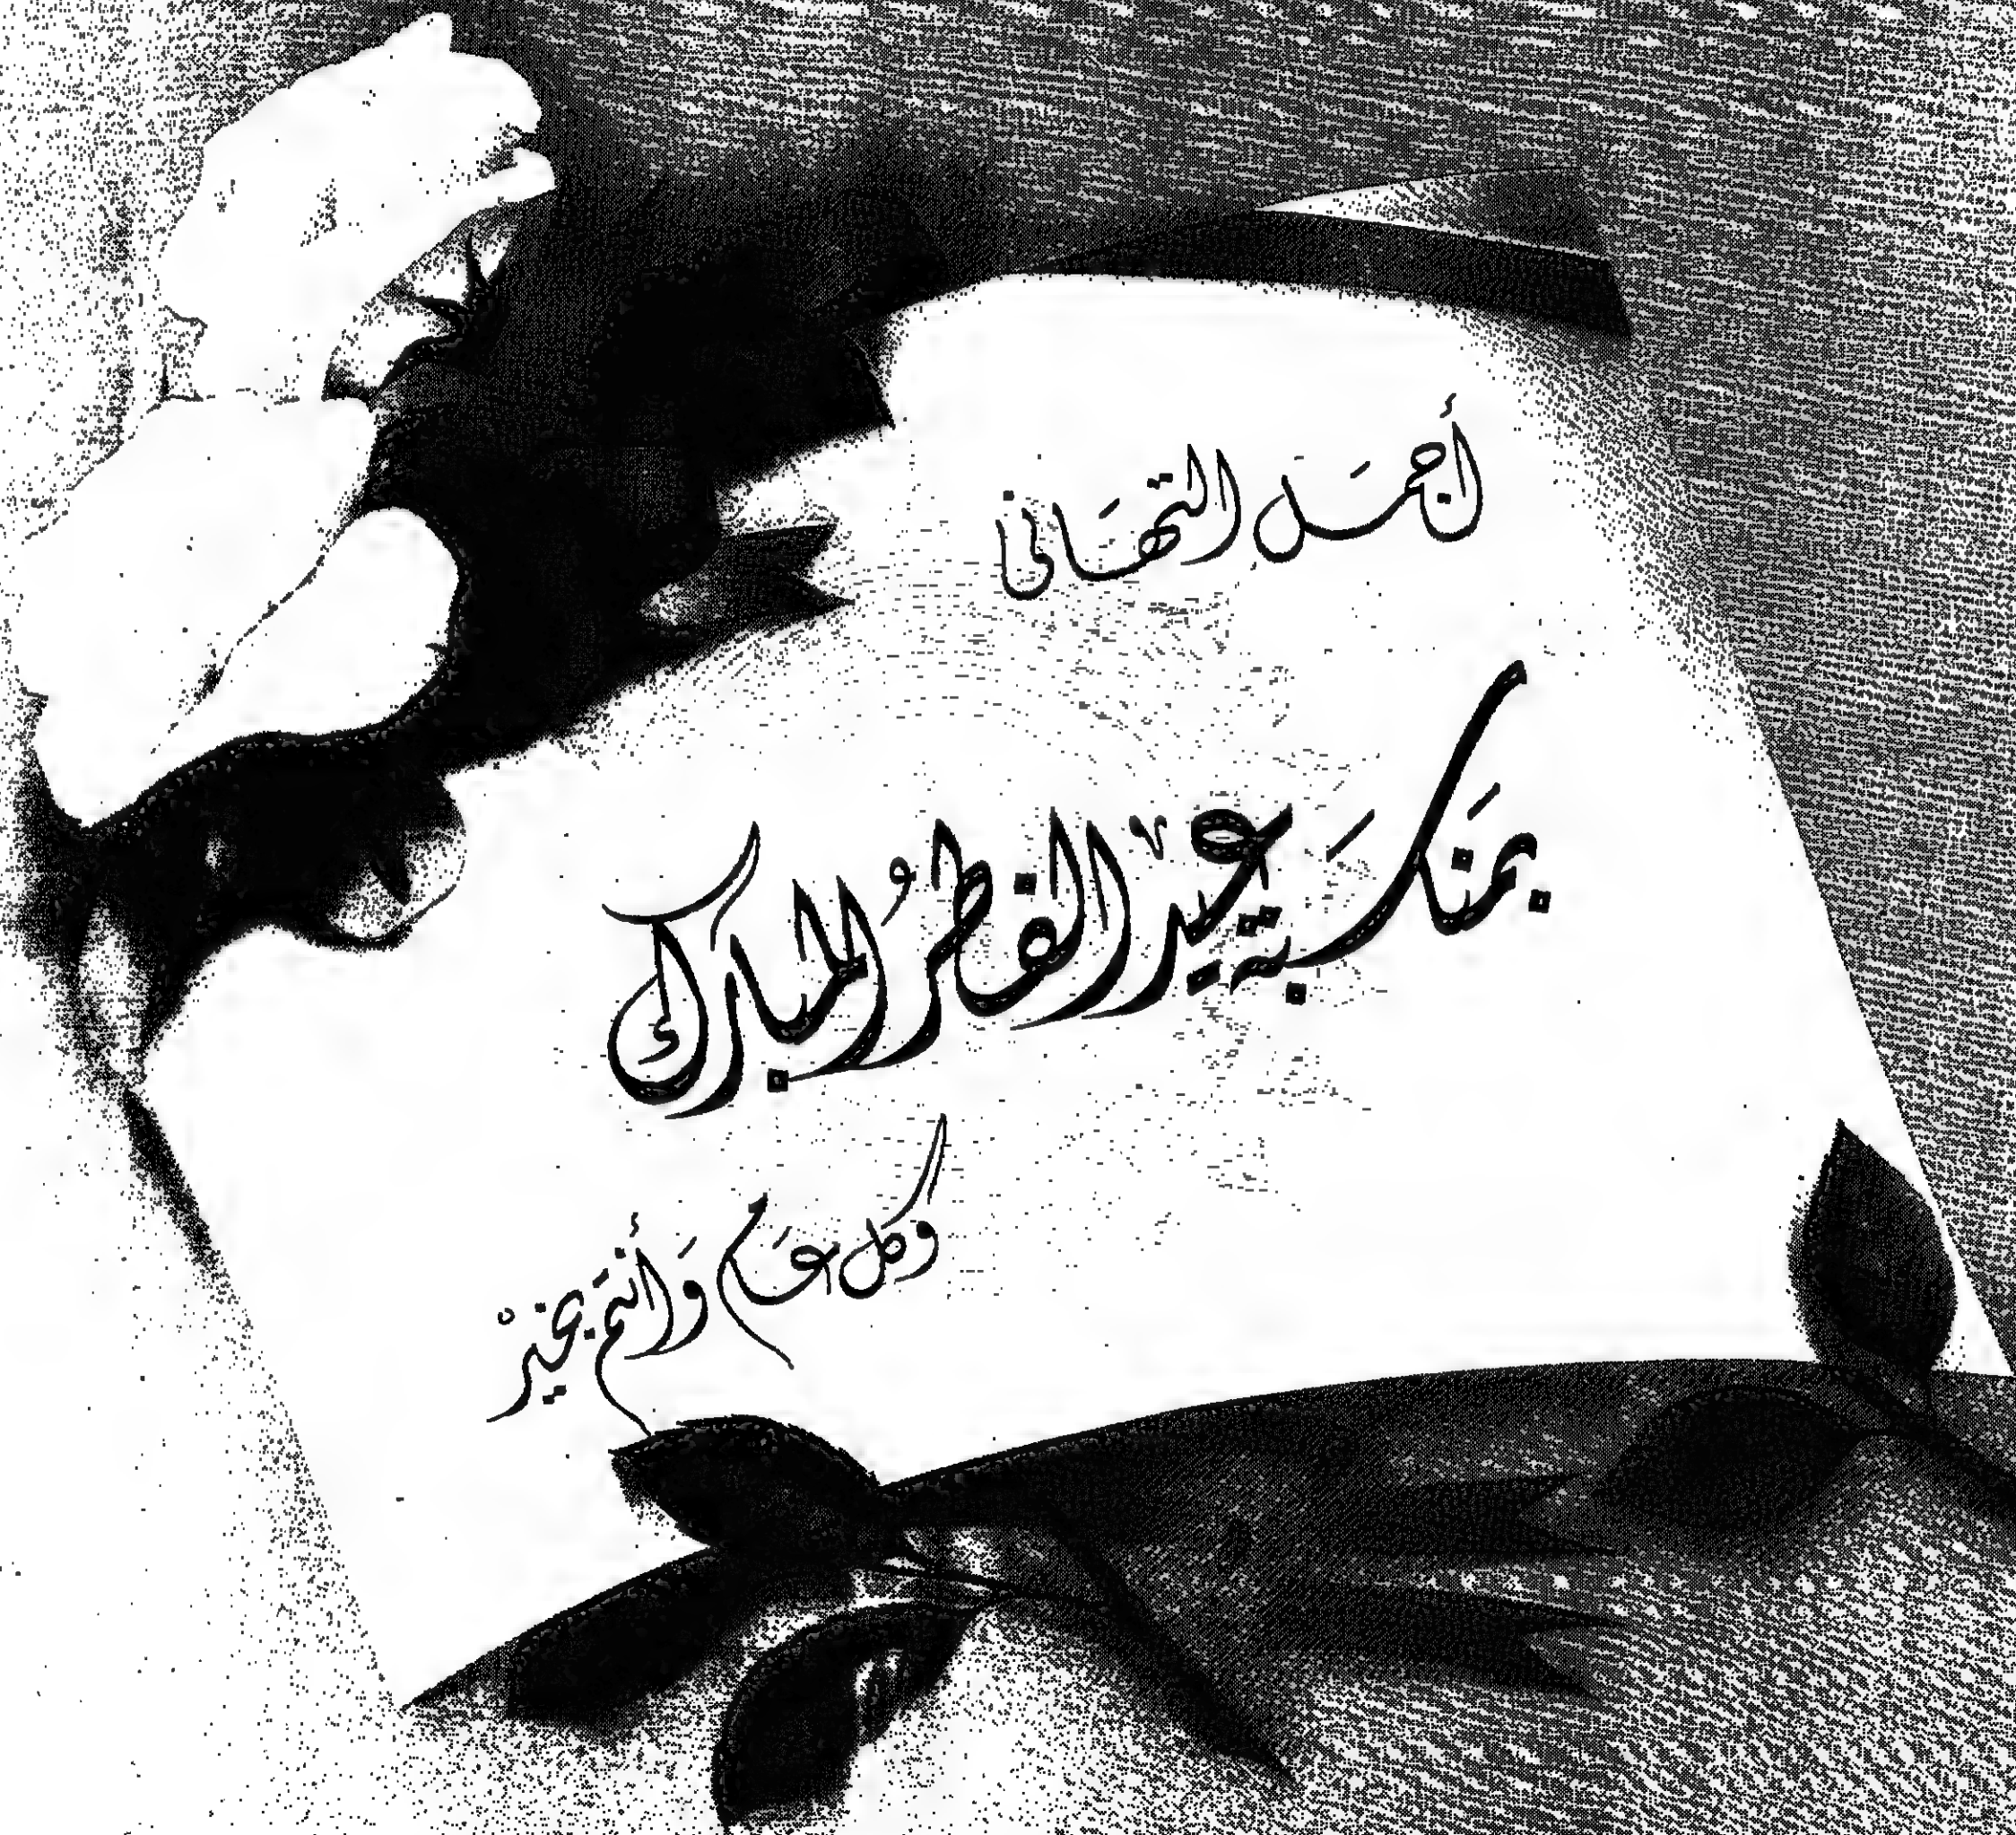 أجمل التهاني
بمناسبة عيد الفطر المبارك
وكل عام وأنتم بخير